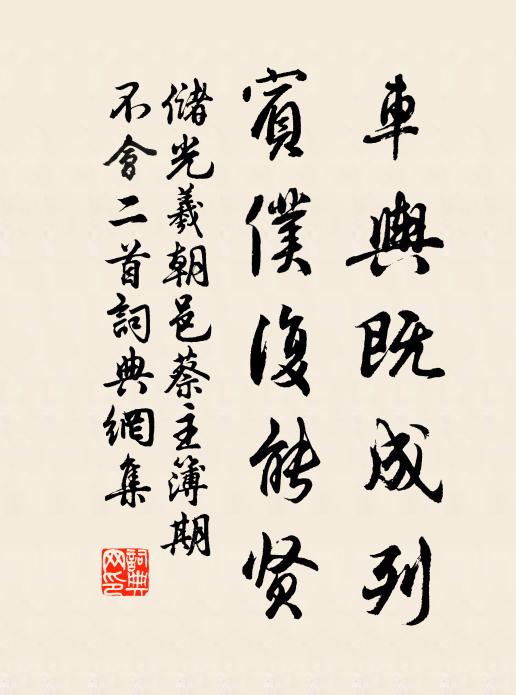 車輿既成列
賓僕復能贤
儲光羲朝邑蔡主簿期
不會二首詞典網集
詞典网印